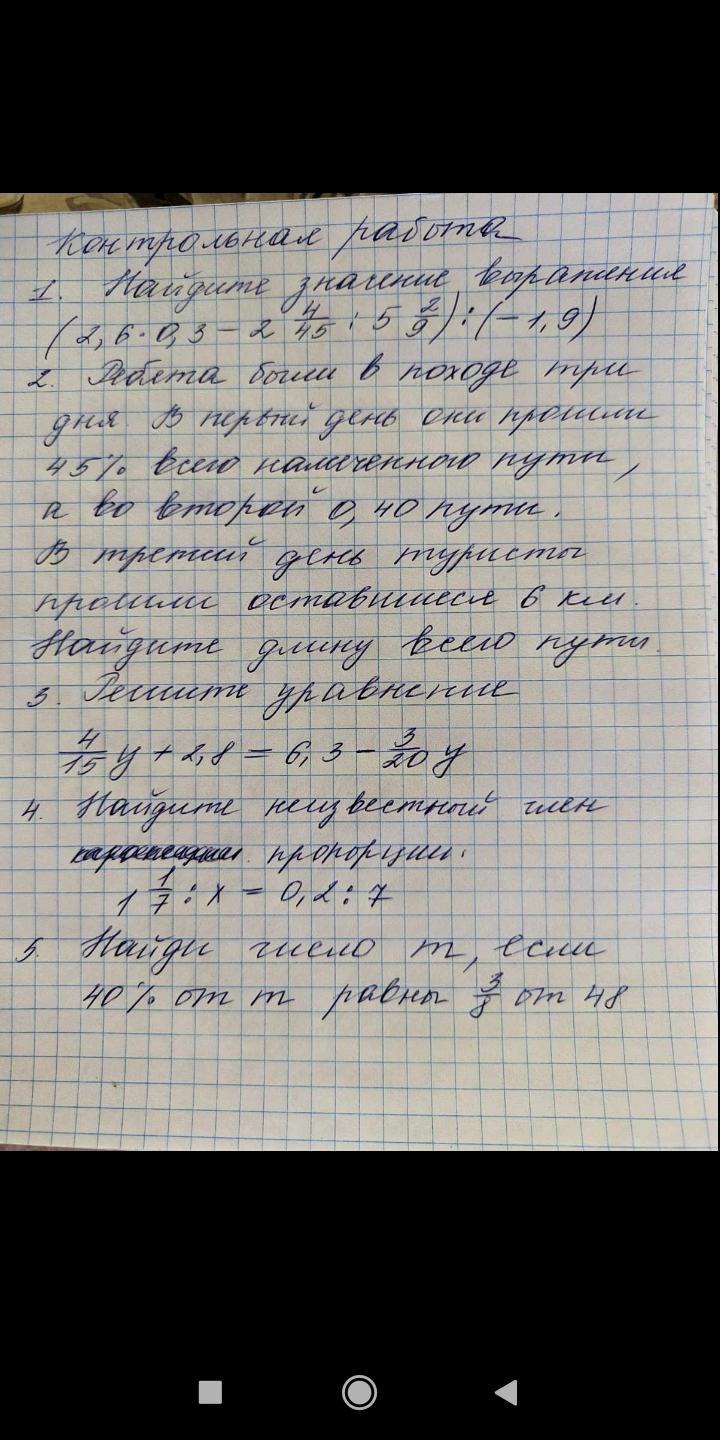 Контрольная работа
1. Найдите значение выражения
(2,6·0,3 − 2 4/45 : 5 2/9) : (−1,9)
2. Ребята были в походе три
дня. В первый день они прошли
45% всего намеченного пути,
а во второй 0,40 пути.
В третий день туристы
прошли оставшиеся 6 км.
Найдите длину всего пути.
3. Решите уравнение
4/15 y + 2,8 = 6,3 − 3/20 y
4. Найдите неизвестный член
пропорции.
1 1/7 : x = 0,2 : 7
5. Найди число m, если
40% от m равны 3/8 от 48